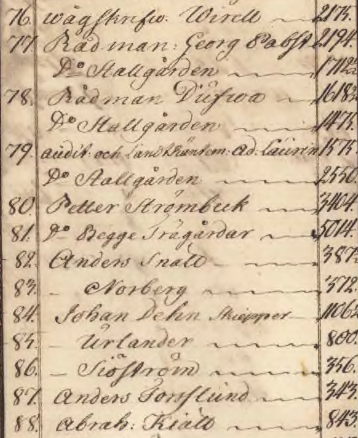 76. Wågskrifw. Wirell 2175.
77. Rådman: Georg Pabst 2194.
D:o Stallgården
78. Rådman Dufwa 16183
D:o Stallgården 1475.
79. Audit: och Landt Räntem: Ad. 1575.
D:o Stallgården 2550.
80. Petter Strömbeck 3404
81. D:o Begge Trägårdar 5014.
82. Anders Snäll 387.
83. – Norberg 372.
84. Johan Dehn Skiepper 1106
85. – Urlander 800.
86. – Siöström 356.
87. Anders Torslund 343
88. Abrah: Kiäll 843